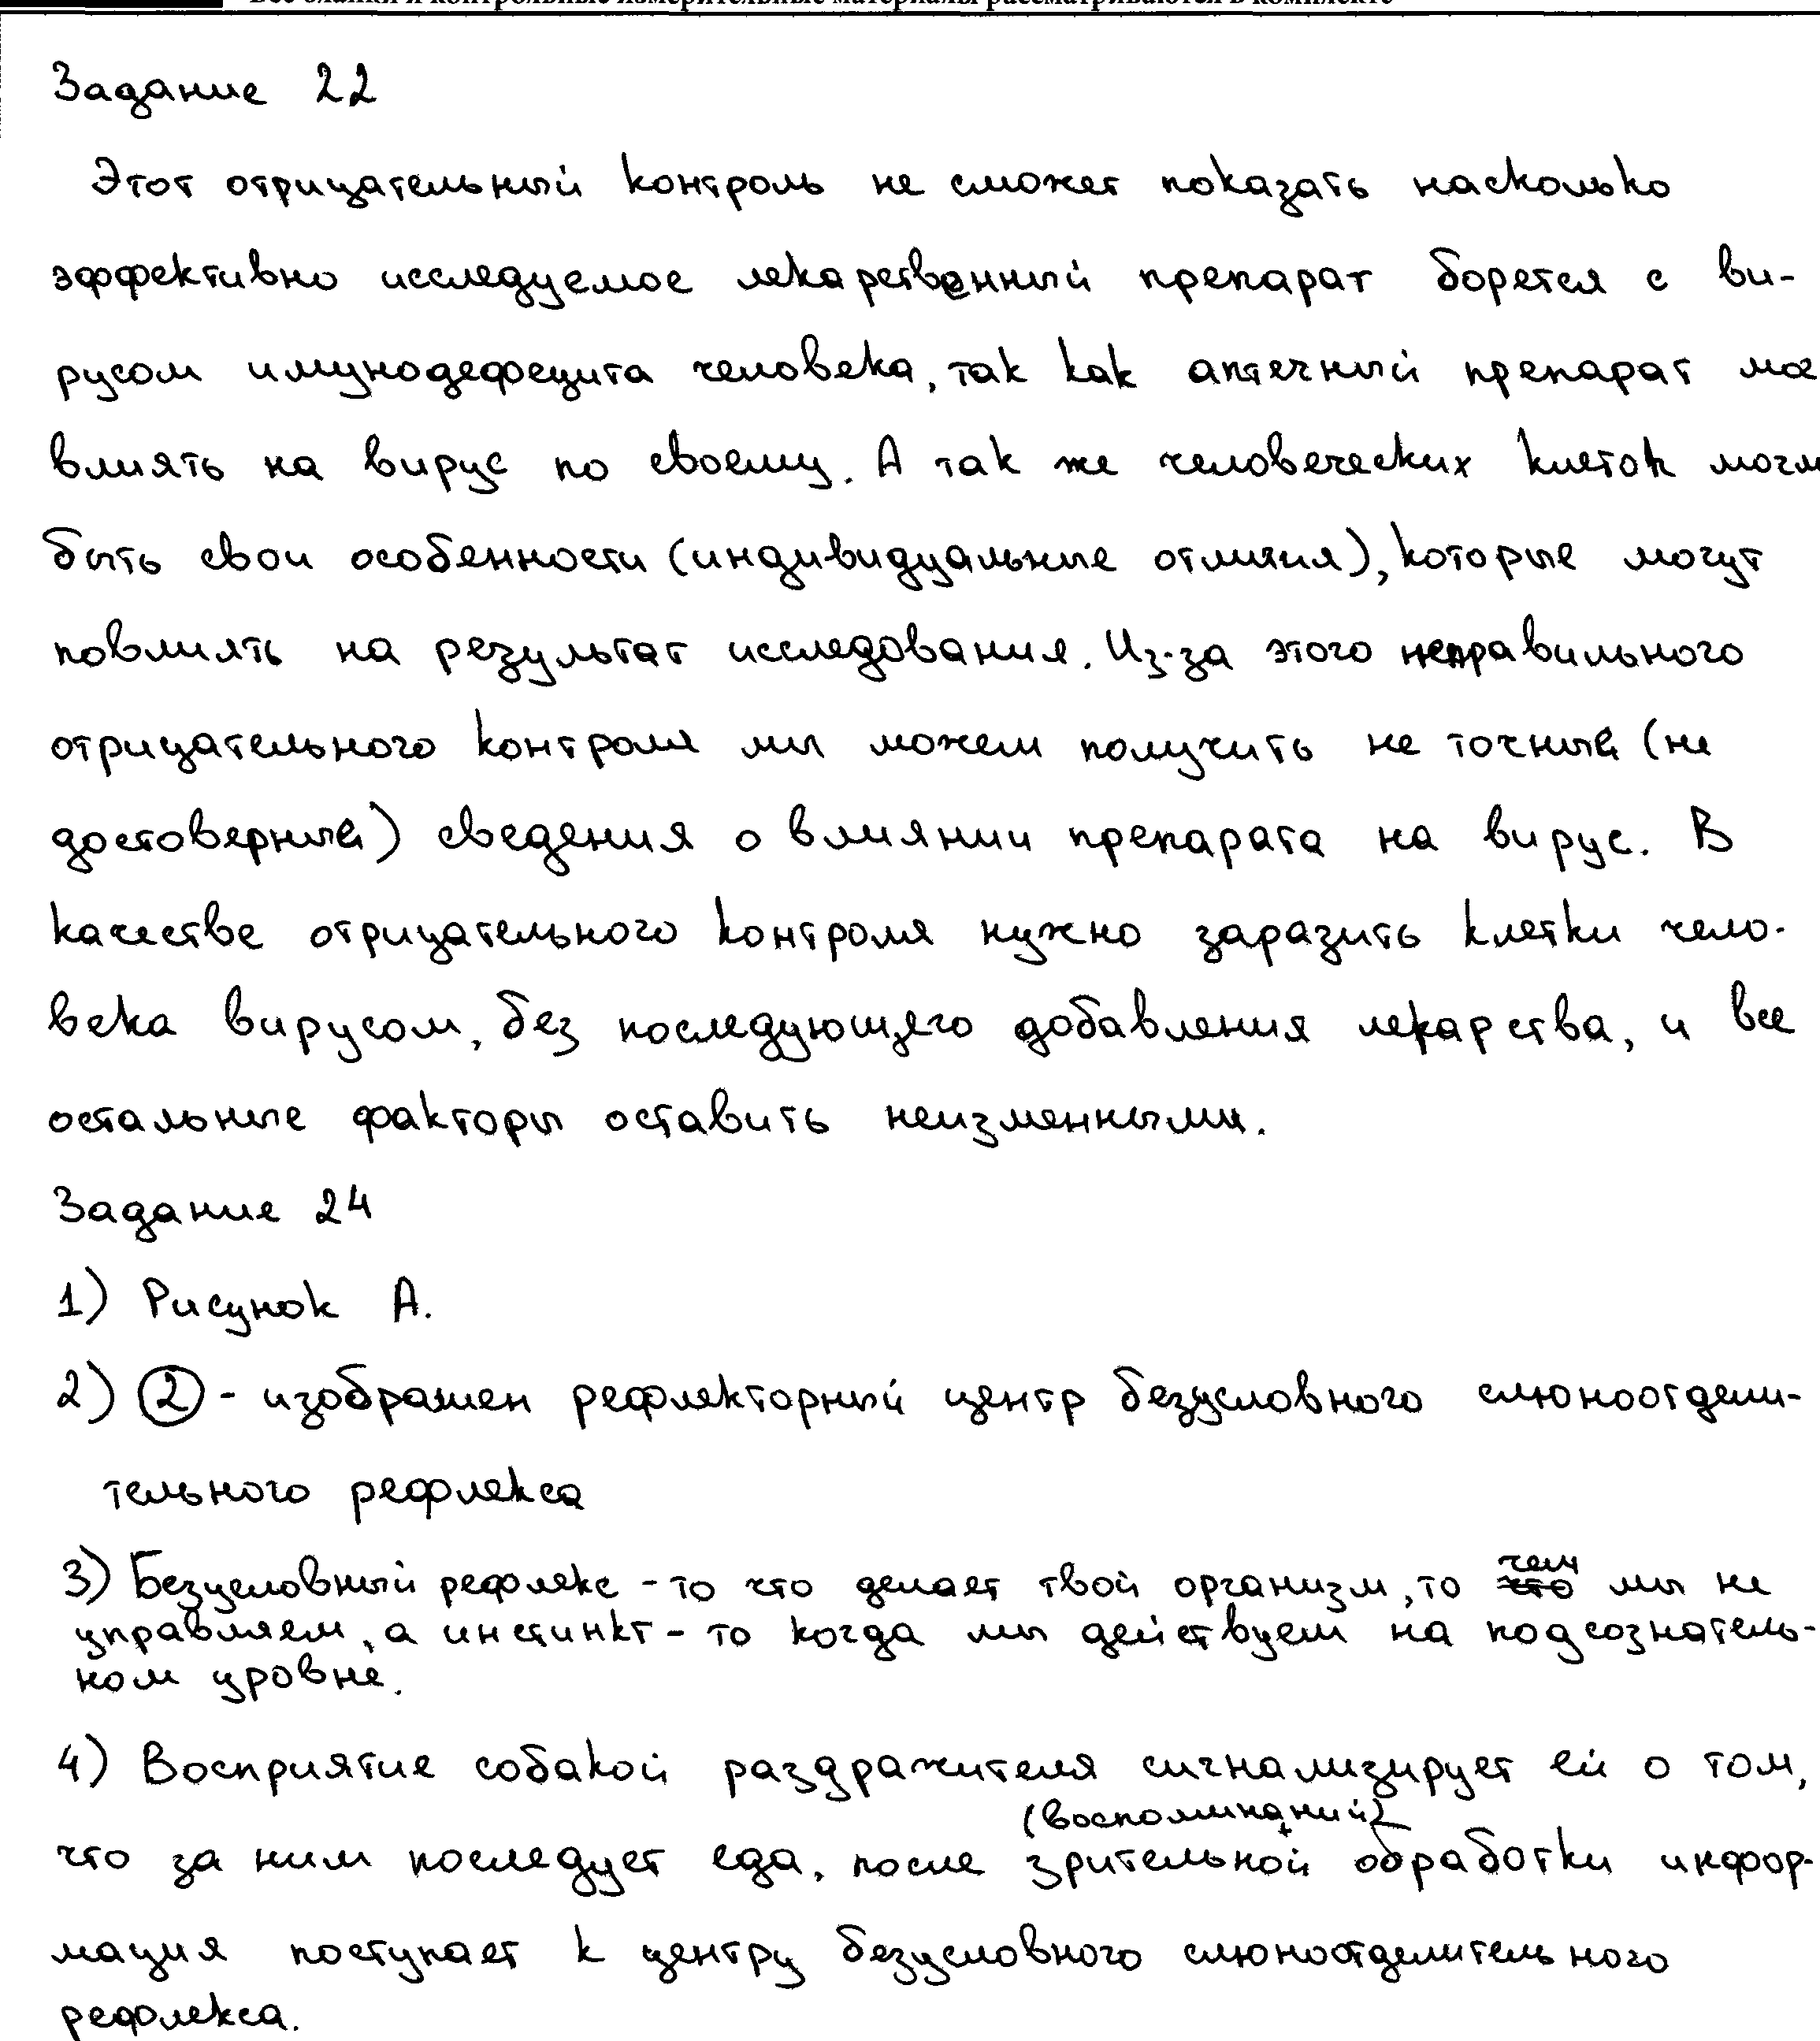 Все бланки и контрольные измерительные материалы рассматриваются в комплекте
Задание 22
Этот отрицательный контроль не сможет показать насколько
эффективно исследуемое лекарственный препарат борется с ви-
русом имунодефецита человека, так как аптечный препарат мог
влиять на вирус по своему. А так же человеческих клеток могли
быть свои особенности (индивидуальные отличия), которые могут
повлиять на результат исследования. Из-за этого неправильного
отрицательного контроля мы можем получить не точный (не
достоверный) сведения о влиянии препарата на вирус. В
качестве отрицательного контроля нужно заразить клетки чело-
века вирусом, без последующего добавления лекарства, и все
остальные факторы оставить неизменными.
Задание 24
1) Рисунок А.
2) ② - изображен рефлекторный центр безусловного слюноотдели-
тельного рефлекса
3) Безусловный рефлекс - то что делает твой организм, то чем мы не
управляем, а инстинкт - то когда мы действуем на подсознатель-
ном уровне.
4) Восприятие собакой раздражителя сигнализирует ей о том,
(воспоминаний)
что за ним последует еда, после зрительной обработки инфор-
мация поступает к центру безусловного слюноотделительного
рефлекса.